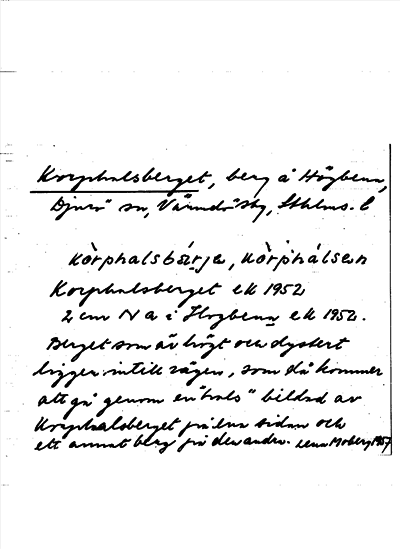 Korphalsberget, berg å Högbenn,
Djurö sn, Värmdö sky, Sthlms. l
kòrphalsbár̥ja, kòrphálsen
Korphalsberget ek 1952
2 cm N a i Hogbenn ek 1952.
Berget som är högt och dystert
ligger intill vägen, som då kommer
att gå genom en "hals" bildad av
Korphalsberget på ena sidan och
ett annat berg på den andra. Lena Moberg 1957